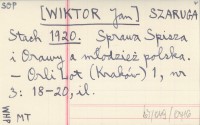 SSP
[WIKTOR Jan] SZARUGA
Stach 1920. Sprawa Spisza
i Orawy a młodzież polska.
– Orli Lot (Kraków) 1, nr
3: 18-20, il.
WHP MT